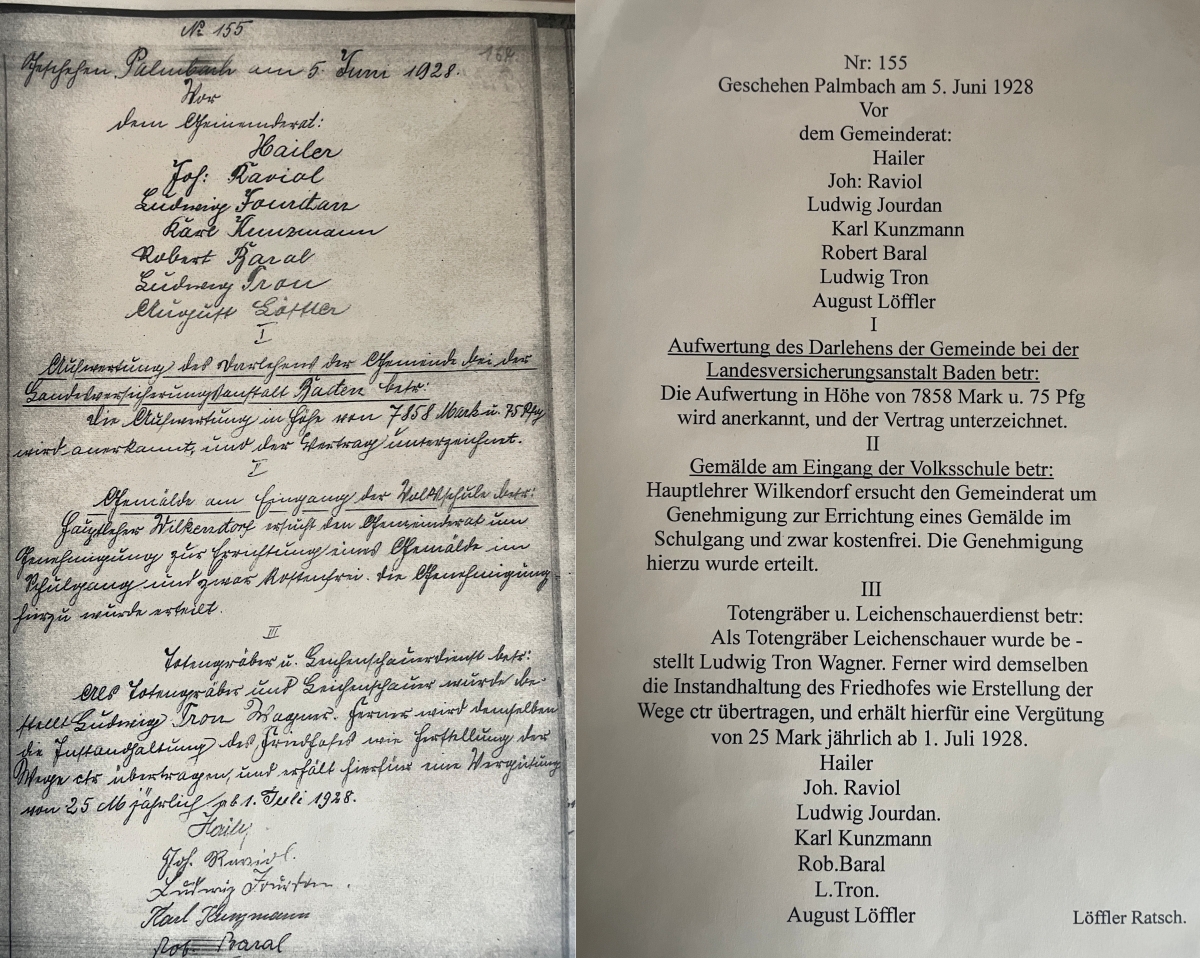 № 155
154
Geschehen Palmbach am 5. Juni 1928.
Vor
dem Gemeinderat:
Hailer
Joh: Raviol
Ludwig Jourdan
Karl Kunzmann
Robert Baral
Ludwig Tron
August Löffler
I
Aufwertung des Darlehens der Gemeinde bei der
Landesversicherungsanstalt Baden betr:
Die Aufwertung in Höhe von 7858 Mark u. 75 Pfg
wird anerkannt, und der Vertrag unterzeichnet.
I
Gemälde am Eingang der Volksschule betr:
Hauptleher Wilkendorf ersucht den Gemeinderat um
Genehmigung zur Errichtung eines Gemälde im
Schulgang und zwar kostenfrei. Die Genehmigung
hierzu wurde erteilt.
III
Totengräber u. Leichenschauerdienst betr:
Als Totengräber und Leichenschauer wurde be-
stellt Ludwig Tron Wagner. Ferner wird demselben
die Instandhaltung des Friedhofes wie Herstellung der
Wege ctr übertragen, und erhält hierfür eine Vergütung
von 25 M jährlich ab 1. Juli 1928.
Hailer
Joh. Raviol.
Ludwig Jourdan.
Karl Kunzmann
Rob. Baral
Nr: 155
Geschehen Palmbach am 5. Juni 1928
Vor
dem Gemeinderat:
Hailer
Joh: Raviol
Ludwig Jourdan
Karl Kunzmann
Robert Baral
Ludwig Tron
August Löffler
I
Aufwertung des Darlehens der Gemeinde bei der
Landesversicherungsanstalt Baden betr:
Die Aufwertung in Höhe von 7858 Mark u. 75 Pfg
wird anerkannt, und der Vertrag unterzeichnet.
II
Gemälde am Eingang der Volksschule betr:
Hauptlehrer Wilkendorf ersucht den Gemeinderat um
Genehmigung zur Errichtung eines Gemälde im
Schulgang und zwar kostenfrei. Die Genehmigung
hierzu wurde erteilt.
III
Totengräber u. Leichenschauerdienst betr:
Als Totengräber Leichenschauer wurde be -
stellt Ludwig Tron Wagner. Ferner wird demselben
die Instandhaltung des Friedhofes wie Erstellung der
Wege ctr übertragen, und erhält hierfür eine Vergütung
von 25 Mark jährlich ab 1. Juli 1928.
Hailer
Joh. Raviol
Ludwig Jourdan.
Karl Kunzmann
Rob.Baral
L.Tron.
August Löffler
Löffler Ratsch.